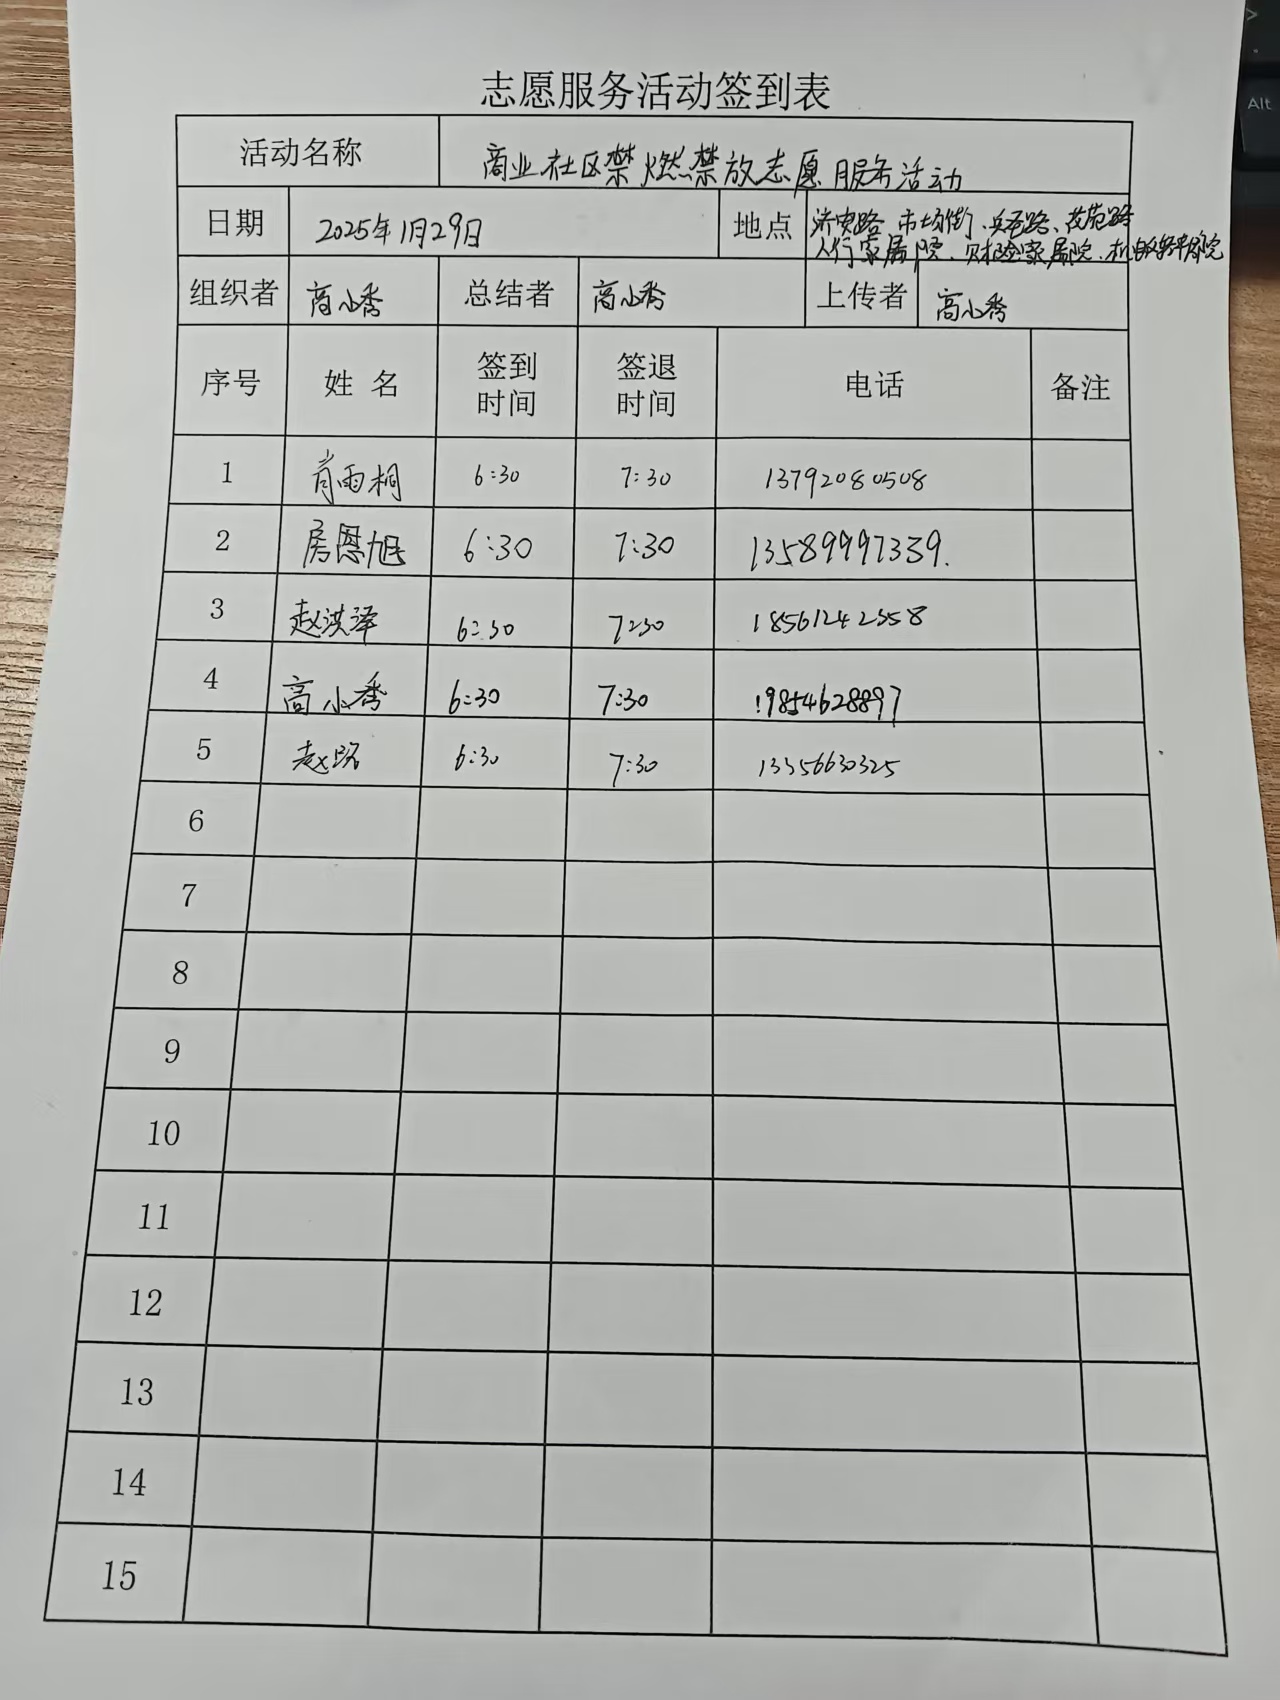 志愿服务活动签到表
活动名称 商业社区禁燃禁放志愿服务活动
日期 2025年1月29日 地点 济安路、市场街、兵圣路、花苑路
人行家属院、财险家属院、机
组织者 高小秀 总结者 高小秀 上传者 高小秀
序号 姓 名 签到时间 签退时间 电话 备注
1 肖雨桐 6:30 7:30 13792080508
2 房恩旭 6:30 7:30 13589997339.
3 赵洪泽 6:30 7:30 18561242358
4 高小秀 6:30 7:30 19854628897
5 赵路 6:30 7:30 13356630325
6
7
8
9
10
11
12
13
14
15
Alt